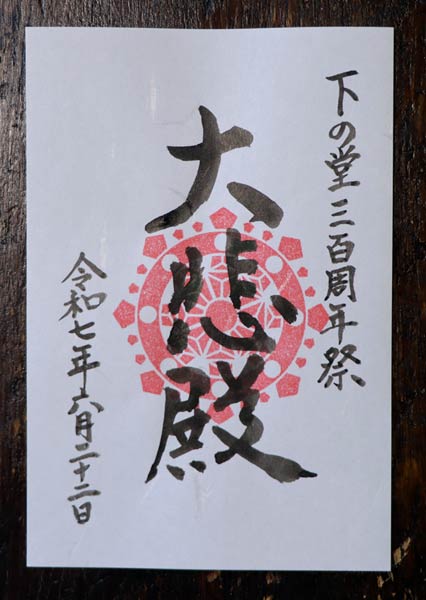 下の堂三百周年祭
大悲殿
令和七年六月二十二日